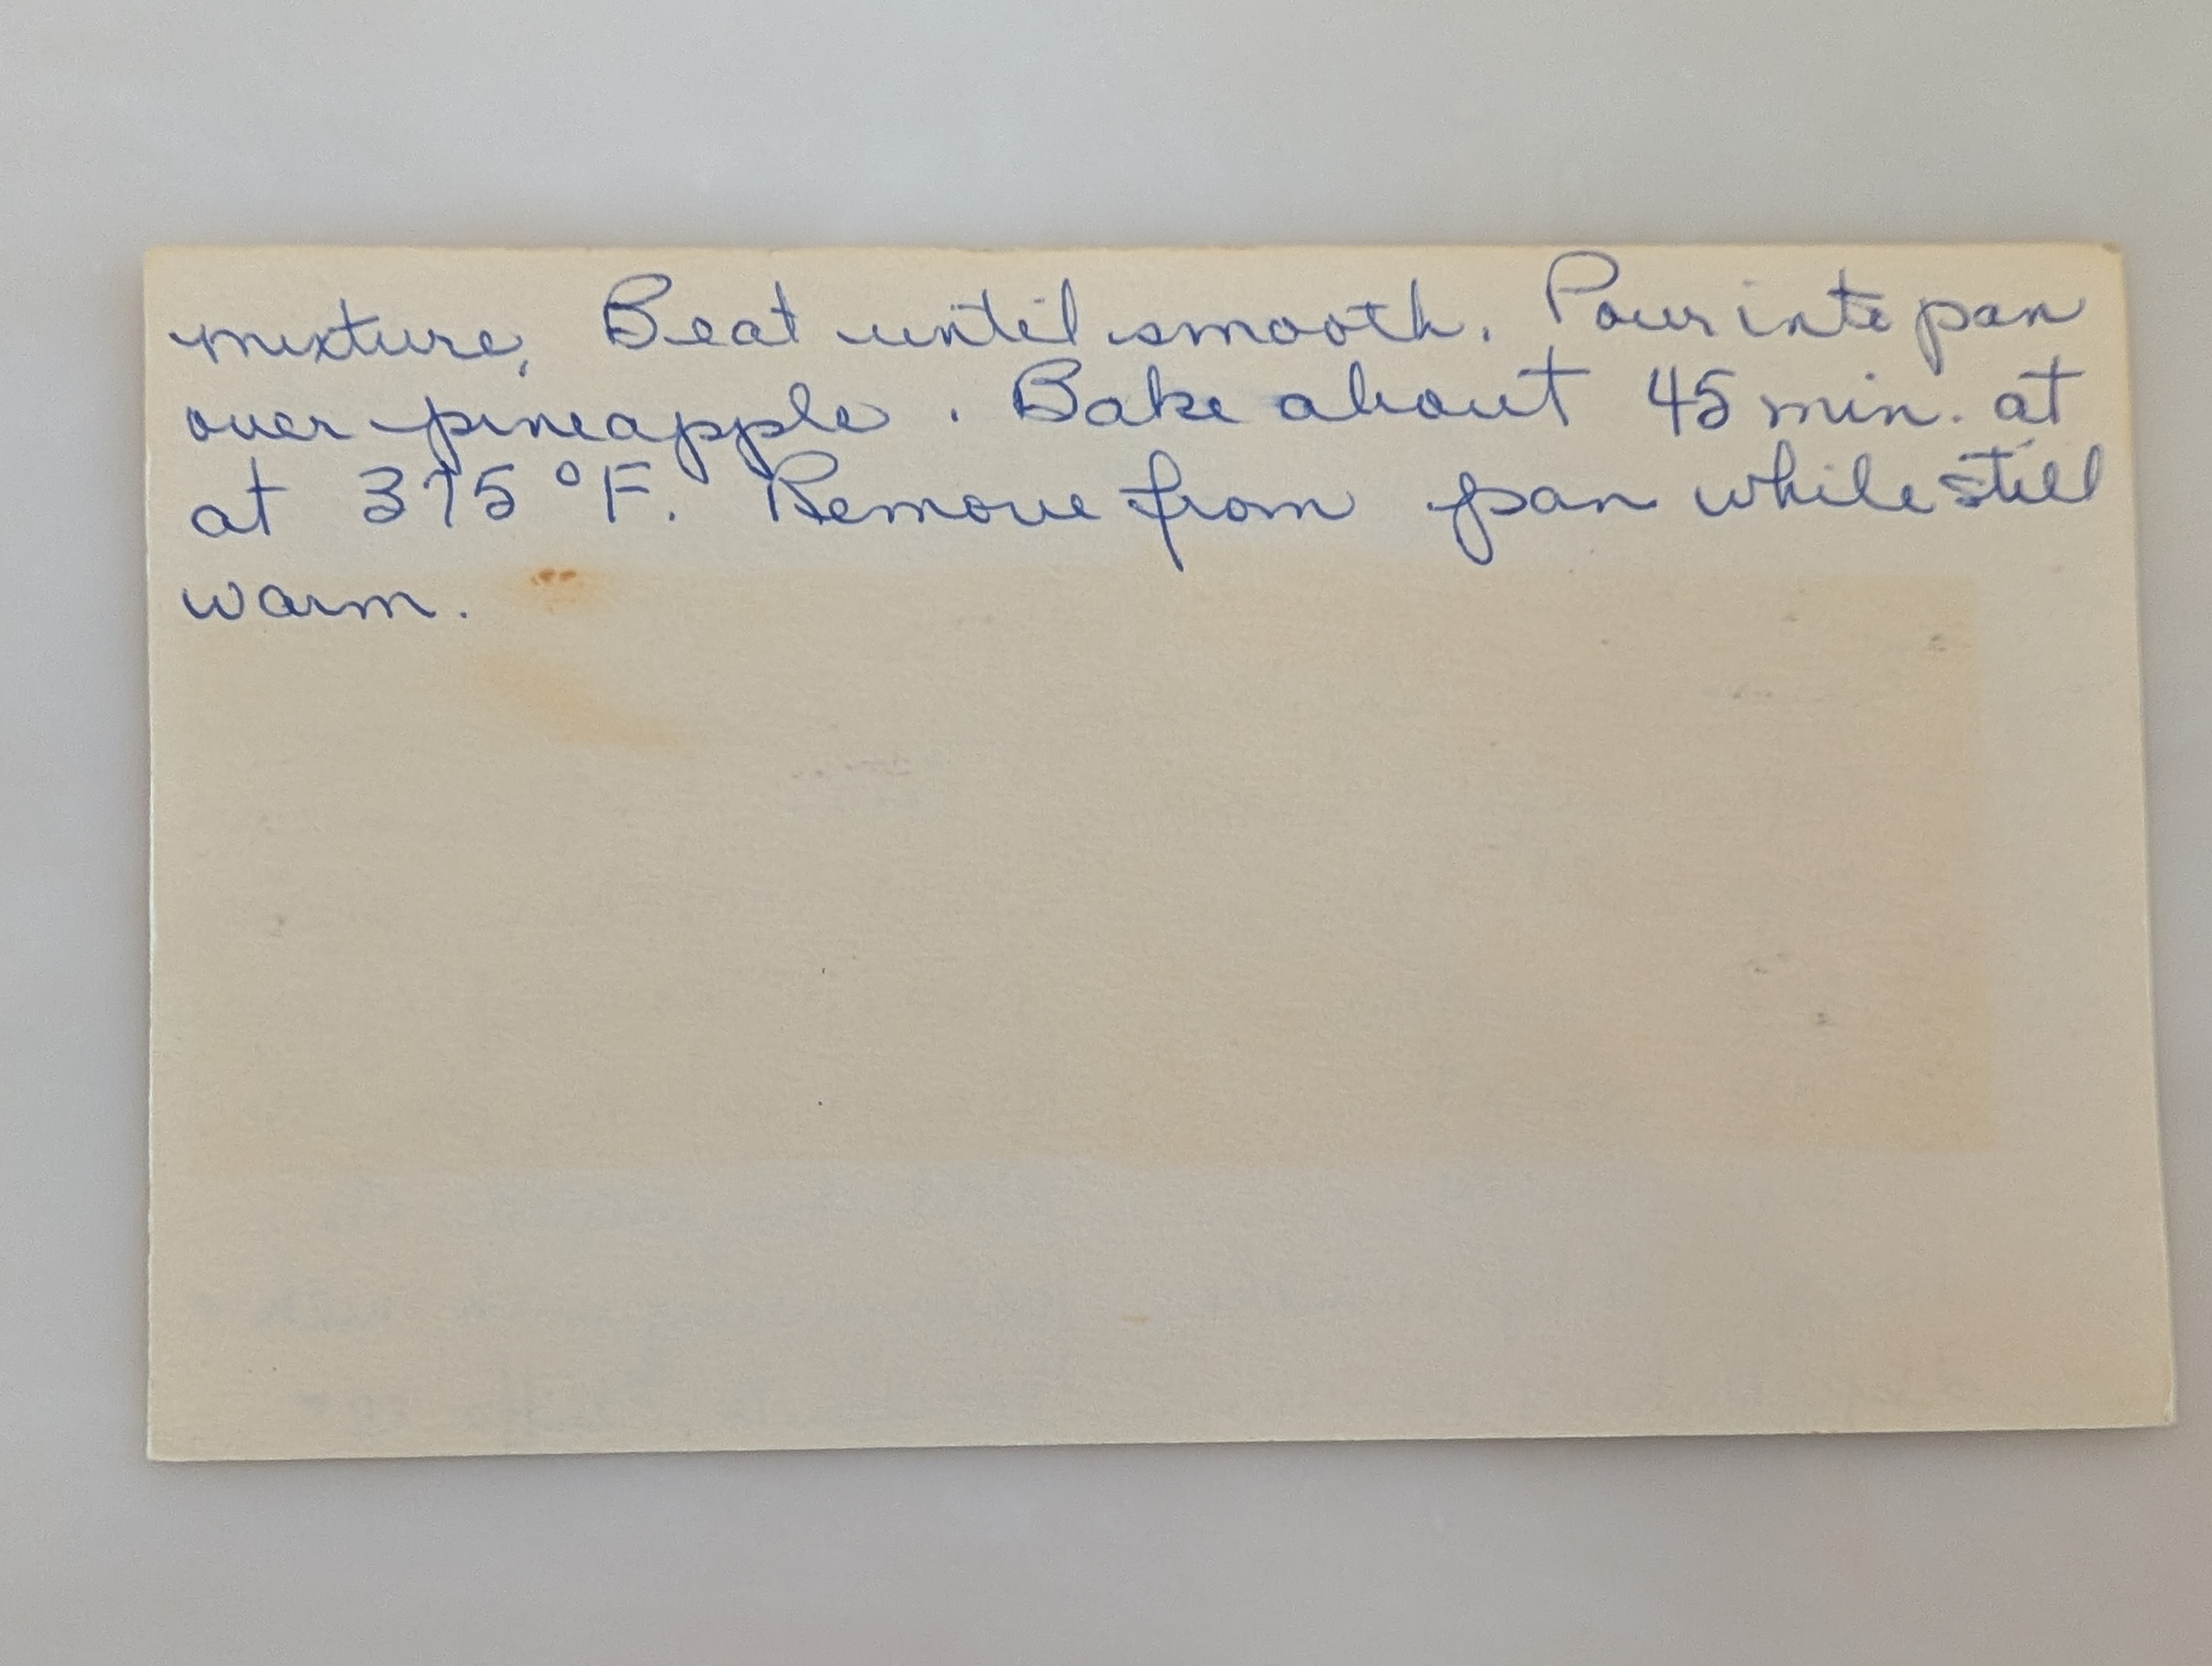 mixture. Beat until smooth. Pour into pan
over pineapple. Bake about 45 min. at
at 375 °F. Remove from pan while still
warm.